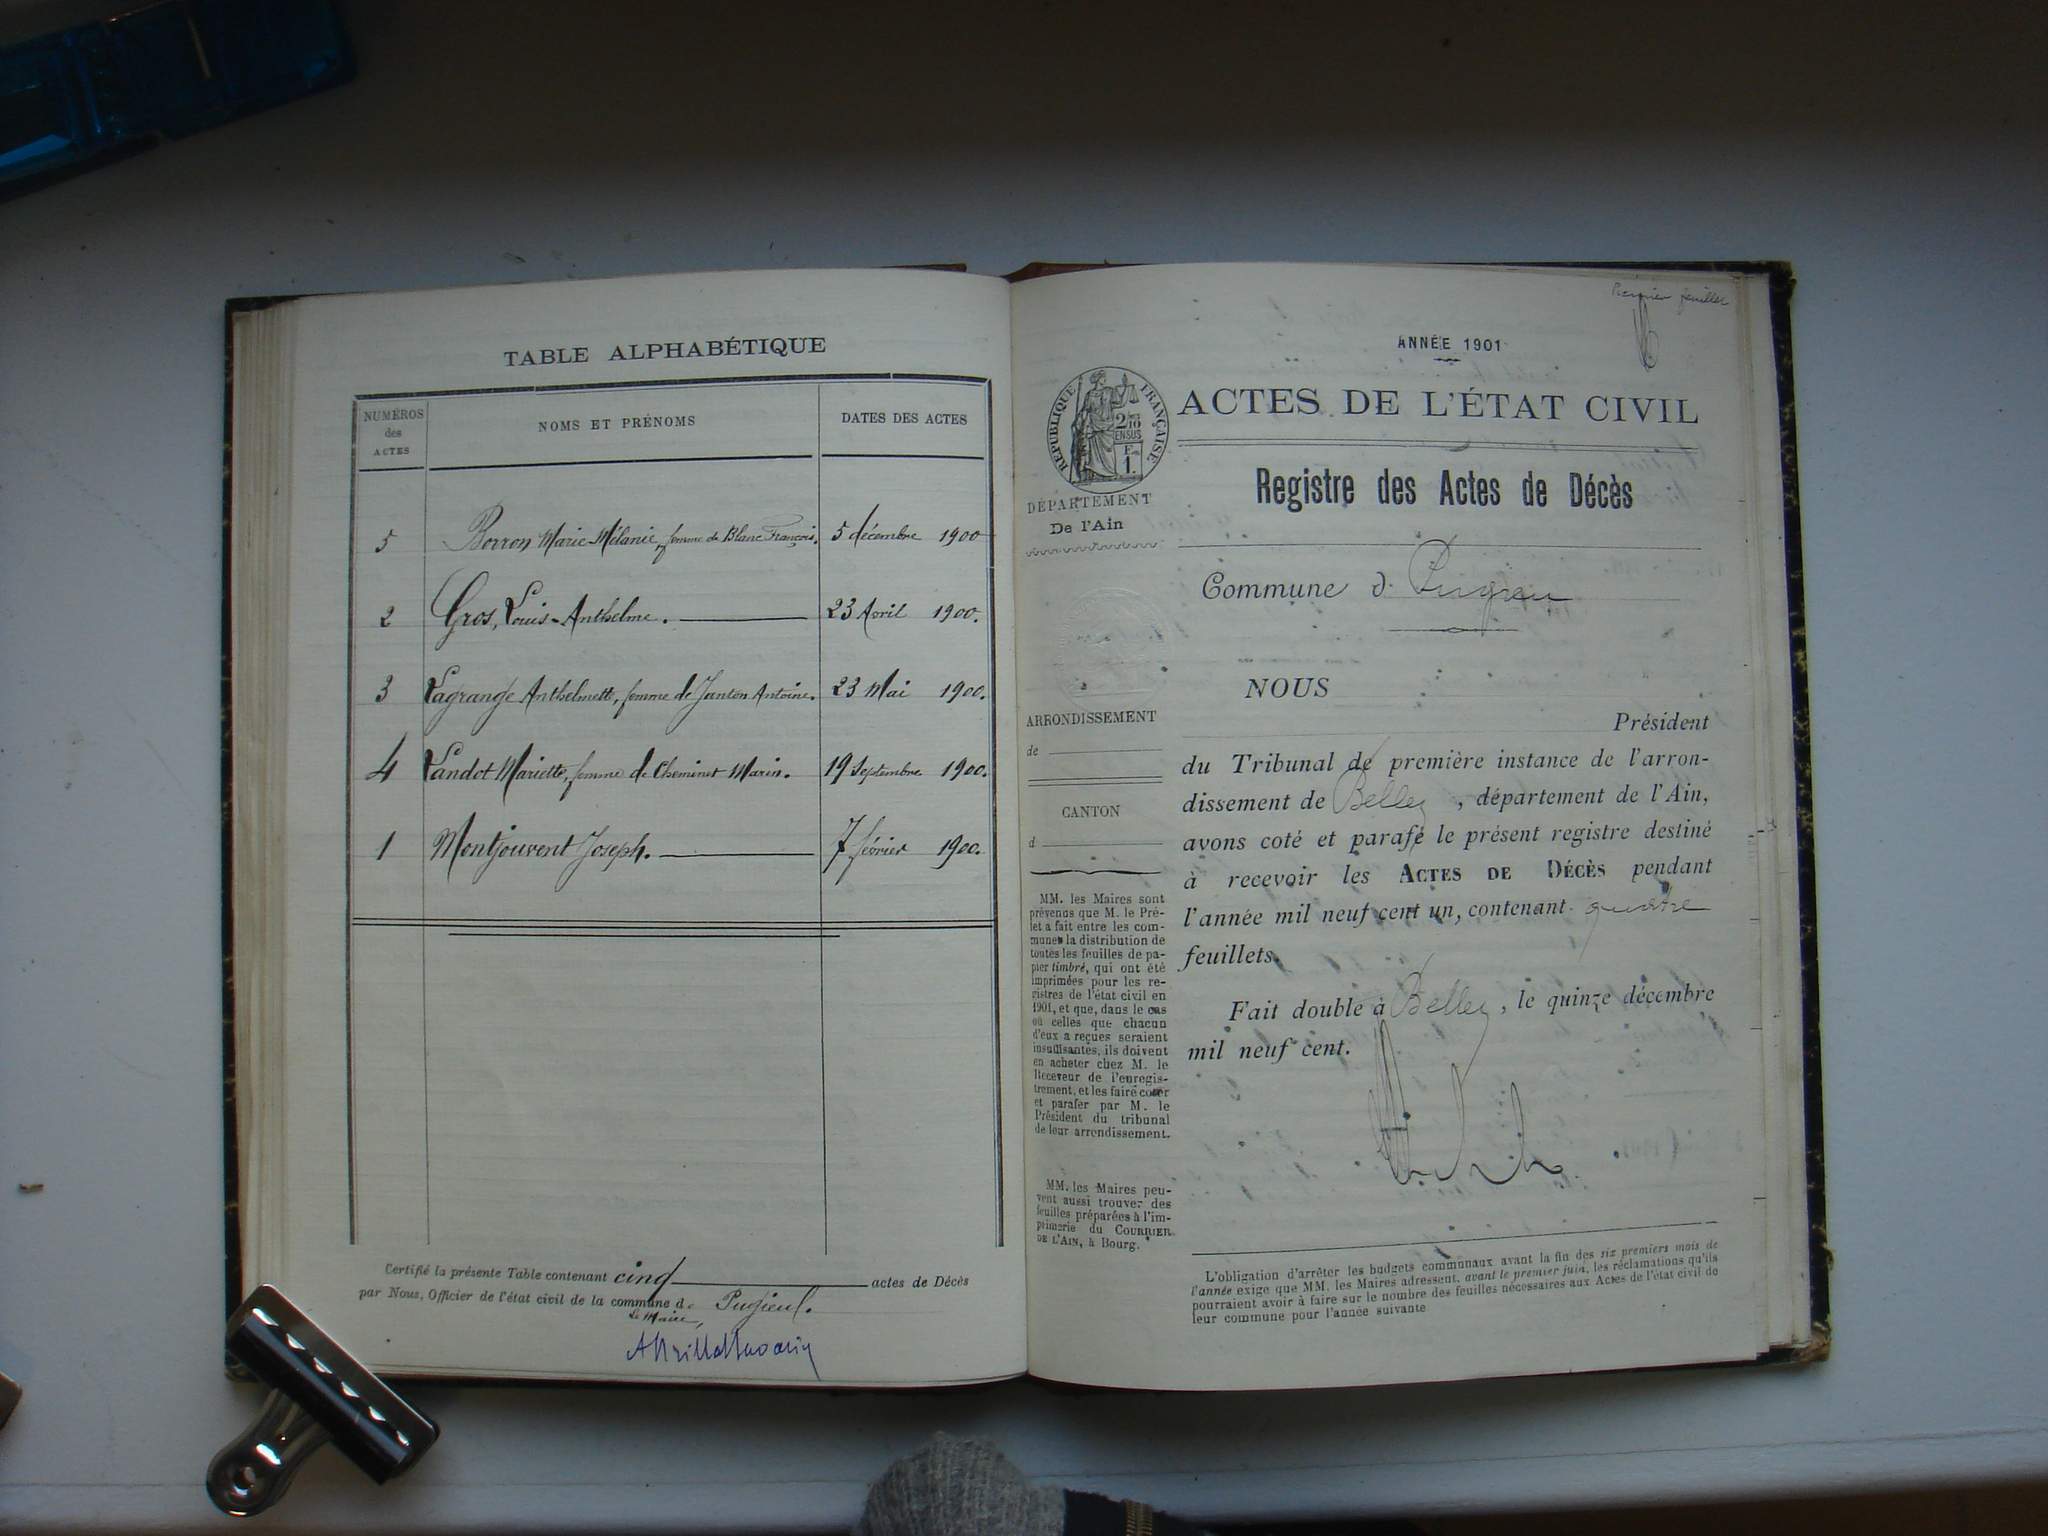 TABLE ALPHABÉTIQUE
NUMÉROS
des
ACTES
NOMS ET PRÉNOMS
DATES DES ACTES
5 Borron Marie-Mélanie, femme de Blanc François. 5 décembre 1900
2 Gros, Louis-Anthelme. 23 Avril 1900.
3 Lagrange Anthelmette, femme de Janton Antoine. 23 Mai 1900.
4 Landot Mariette, femme de Cheminet Marin. 19 Septembre 1900.
1 Montjouvent Joseph. 7 février 1900.
Certifié la présente Table contenant cinq actes de Décès
par Nous, Officier de l'état civil de la commune de Pugieul.
Le Maire,
Premier feuillet
ANNÉE 1901
RÉPUBLIQUE FRANÇAISE
2/10
EN SUS
F.
1.
DÉPARTEMENT
De l'Ain
ARRONDISSEMENT
de
CANTON
d
MM. les Maires sont
prévenus que M. le Pré-
fet a fait entre les com-
munes la distribution de
toutes les feuilles de pa-
pier timbré, qui ont été
imprimées pour les re-
gistres de l'état civil en
1901, et que, dans le cas
où celles que chacun
d'eux a reçues seraient
insuffisantes, ils doivent
en acheter chez M. le
Receveur de l'enregis-
trement, et les faire coter
et parafer par M. le
Président du tribunal
de leur arrondissement.
MM. les Maires peu-
vent aussi trouver des
feuilles préparées à l'im-
primerie du COURRIER
DE L'AIN, à Bourg.
ACTES DE L'ÉTAT CIVIL
Registre des Actes de Décès
Commune d Pugieu
NOUS
Président
du Tribunal de première instance de l'arron-
dissement de Belley, département de l'Ain,
avons coté et parafé le présent registre destiné
à recevoir les ACTES DE DÉCÈS pendant
l'année mil neuf cent un, contenant quatre
feuillets.
Fait double à Belley, le quinze décembre
mil neuf cent.
L'obligation d'arrêter les budgets communaux avant la fin des six premiers mois de
l'année exige que MM. les Maires adressent, avant le premier juin, les réclamations qu'ils
pourraient avoir à faire sur le nombre des feuilles nécessaires aux Actes de l'état civil de
leur commune pour l'année suivante